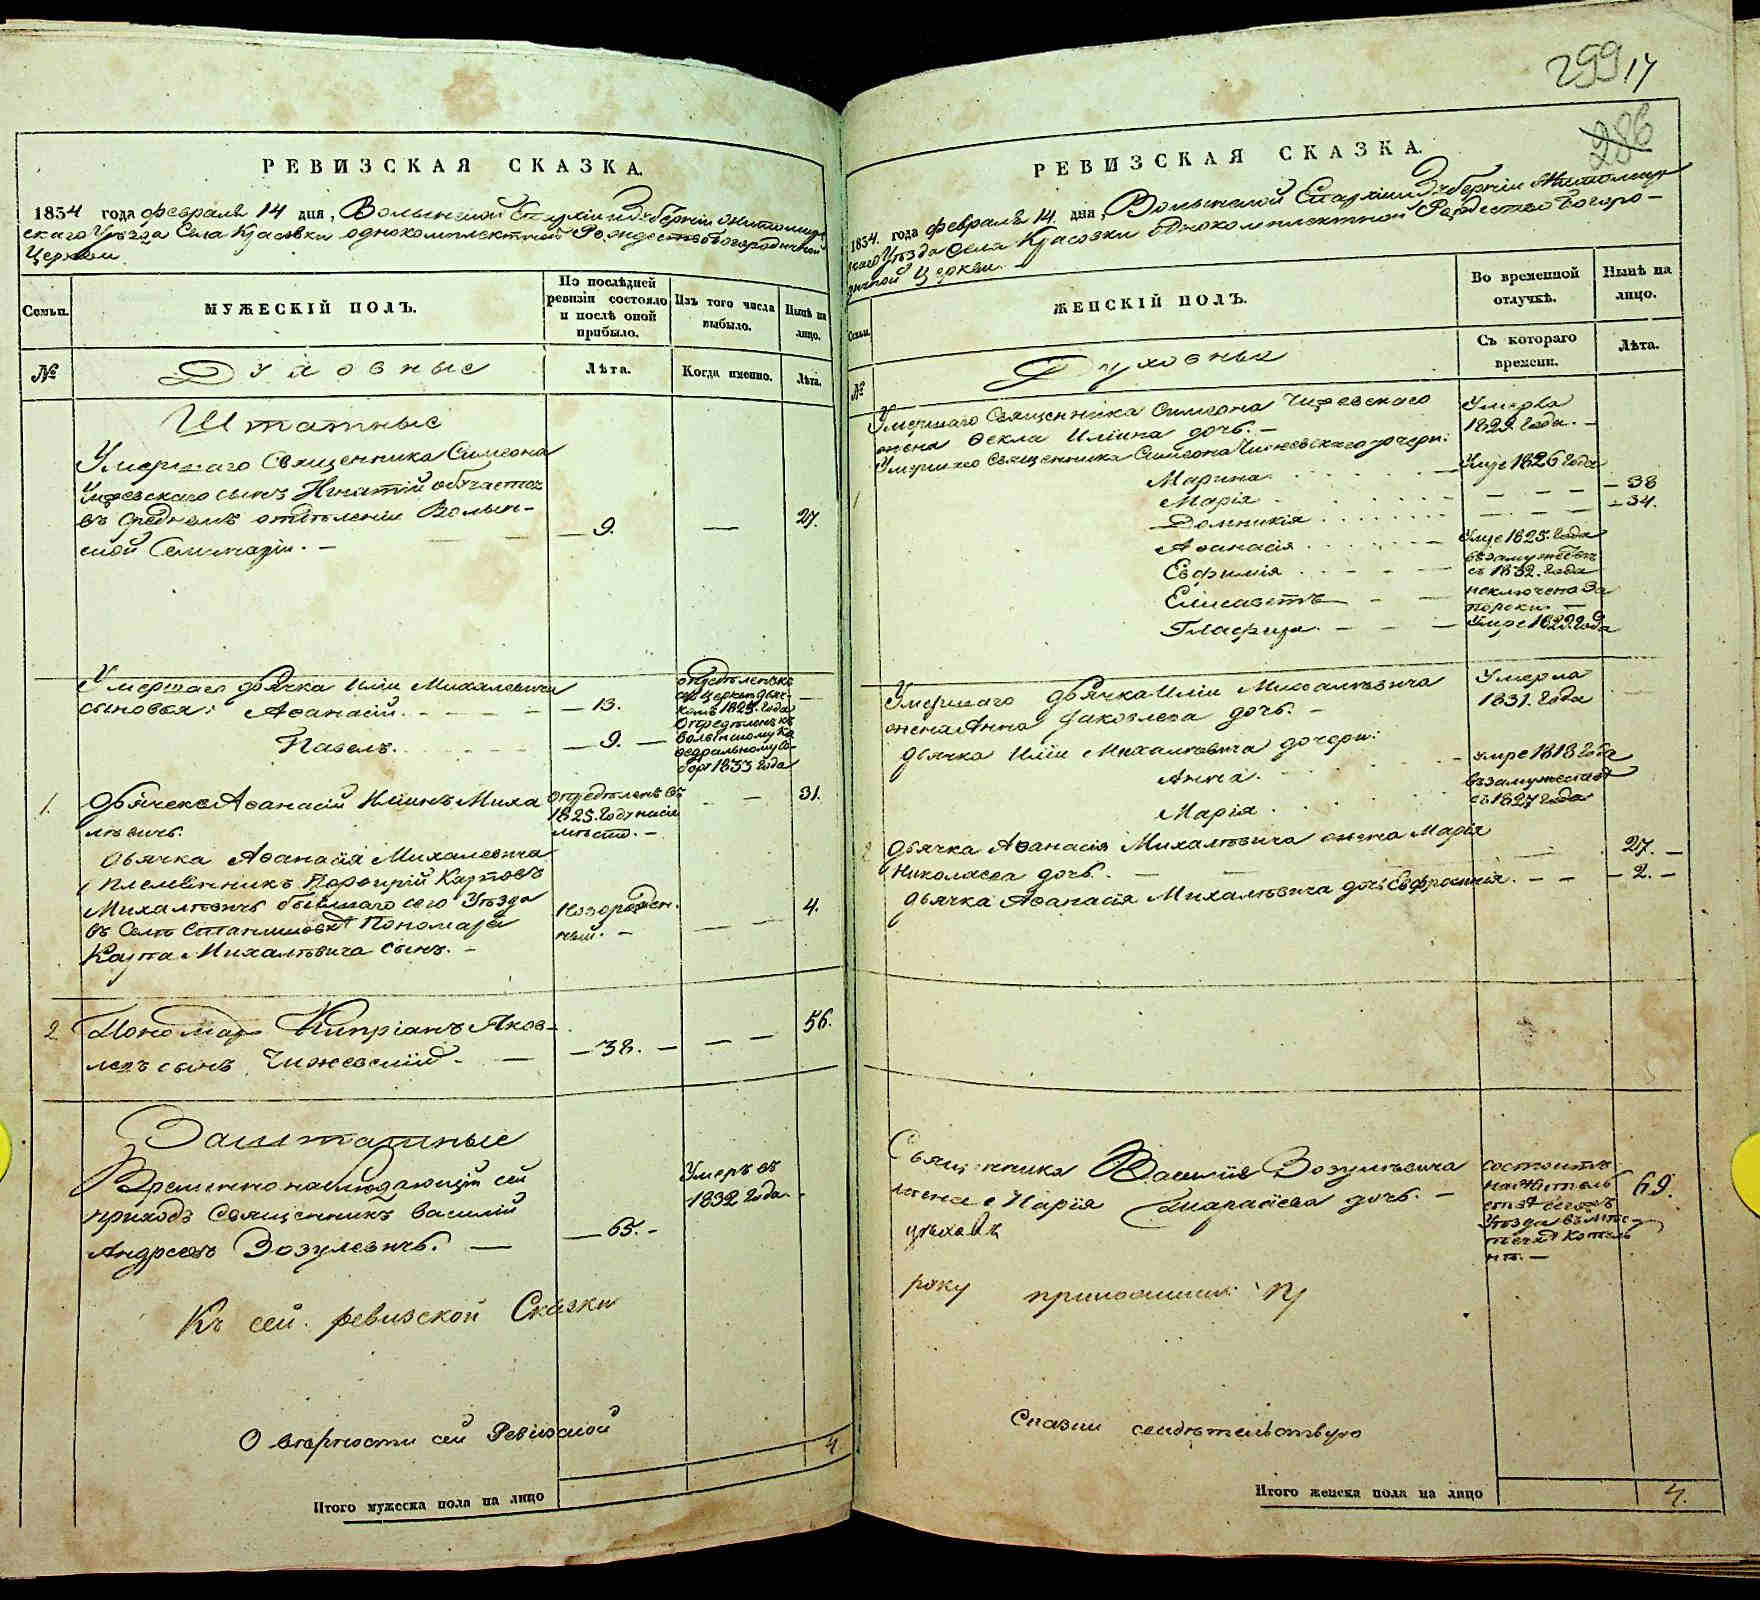 РЕВИЗСКАЯ СКАЗКА.
1834 года февраля 14 дня, Волынской Епархіи и Губерніи Житомир-
скаго Уѣзда Села Красовки однокомплектной Рождествобогородичной
Церкви.
Семьи.
МУЖЕСКІЙ ПОЛЪ.
По послѣдней
ревизіи состояло
и послѣ оной
прибыло.
Изъ того числа
выбыло.
Нынѣ на
лицо.
№
Духовные
Лѣта.
Когда именно.
Лѣта.
Штатные
Умершаго Священника Симеона
сынъ Игнатій обучается
въ Среднемъ отдѣленіи Волын-
ской Семинаріи. —
— 9.
—
27.
Умершаго дьячка Иліи Михалевича
сыновья: Аѳанасій.
— 13.
опредѣленъ къ
сей церкви дьяч-
комъ 1825. года
Павелъ.
— 9. —
Опредѣленъ къ
Волынскому Ка
ѳедральному Со-
бору 1833 года
1.
Дьячекъ Аѳанасій Иліинъ Миха
лѣвичъ.
опредѣленъ въ
1825. году на сіе
мѣсто. —
31.
Дьячка Аѳанасія Михалевича
племянникъ Порфирій Карповъ
Михалѣвичъ бывшаго сего Уѣзда
въ Селѣ Пономаря
Карпа Михалѣвича сынъ. —
Новорожден-
ный. —
4.
2
Пономарь Кипріанъ Яков-
левъ сынъ Чижевскій.
— 38. —
56.
Заштатные
Временно наблюдающій сей
приходъ Священникъ Василій
Андреевъ Зозулевичъ. —
— 65. —
Умеръ въ
1832 года.
Къ сей ревизской Сказки
О вѣрности сей Ревизской
Итого мужеска пола на лицо
4
299 17
286
РЕВИЗСКАЯ СКАЗКА.
1834. года февраля 14. дня, Волынской Епархіи и Губерніи Житомир
скаго Уѣзда Села Красовки однокомплектной Рождество Богоро-
дичной Церкви.
Семьи.
ЖЕНСКІЙ ПОЛЪ.
Во временной
отлучкѣ.
Нынѣ на
лицо.
№
Духовные
Съ котораго
времени.
Лѣта.
Умершаго Священника Симеона Чижевскаго
жена Ѳекла Иліина дочь. —
Умерла
1829. года. —
Умершаго Священника Симеона Чижевскаго дочери:
1
Марина
Умре 1826 года
Марія
— 38
Домникія
— 34.
Аѳанасія
Умре 1825. года
Евфимія
въ замужествѣ
съ 1832. года
Елисаветъ
исключена за
пороки. —
Глафира
Умре 1829. года
Умершаго дьячка Иліи Михалѣвича
жена Анна Яковлева дочь. —
Умерла
1831. года
Дьячка Иліи Михалѣвича дочери:
Анна
умре 1818 года
Марія
въ замужествѣ
съ 1827 года
2
Дьячка Аѳанасія Михалѣвича жена Марія
Николаева дочь. —
27. —
Дьячка Аѳанасія Михалѣвича дочь Евфросинія.
— 2. —
Священника Василія Зозулѣвича
жена Марія дочь. —
состоитъ
на житель
ствѣ сего жъ
Уѣзда въ мѣс-
течкѣ Котель
нѣ. —
69.
руку
Сказки свидѣтельствую
Итого женска пола на лицо
4.